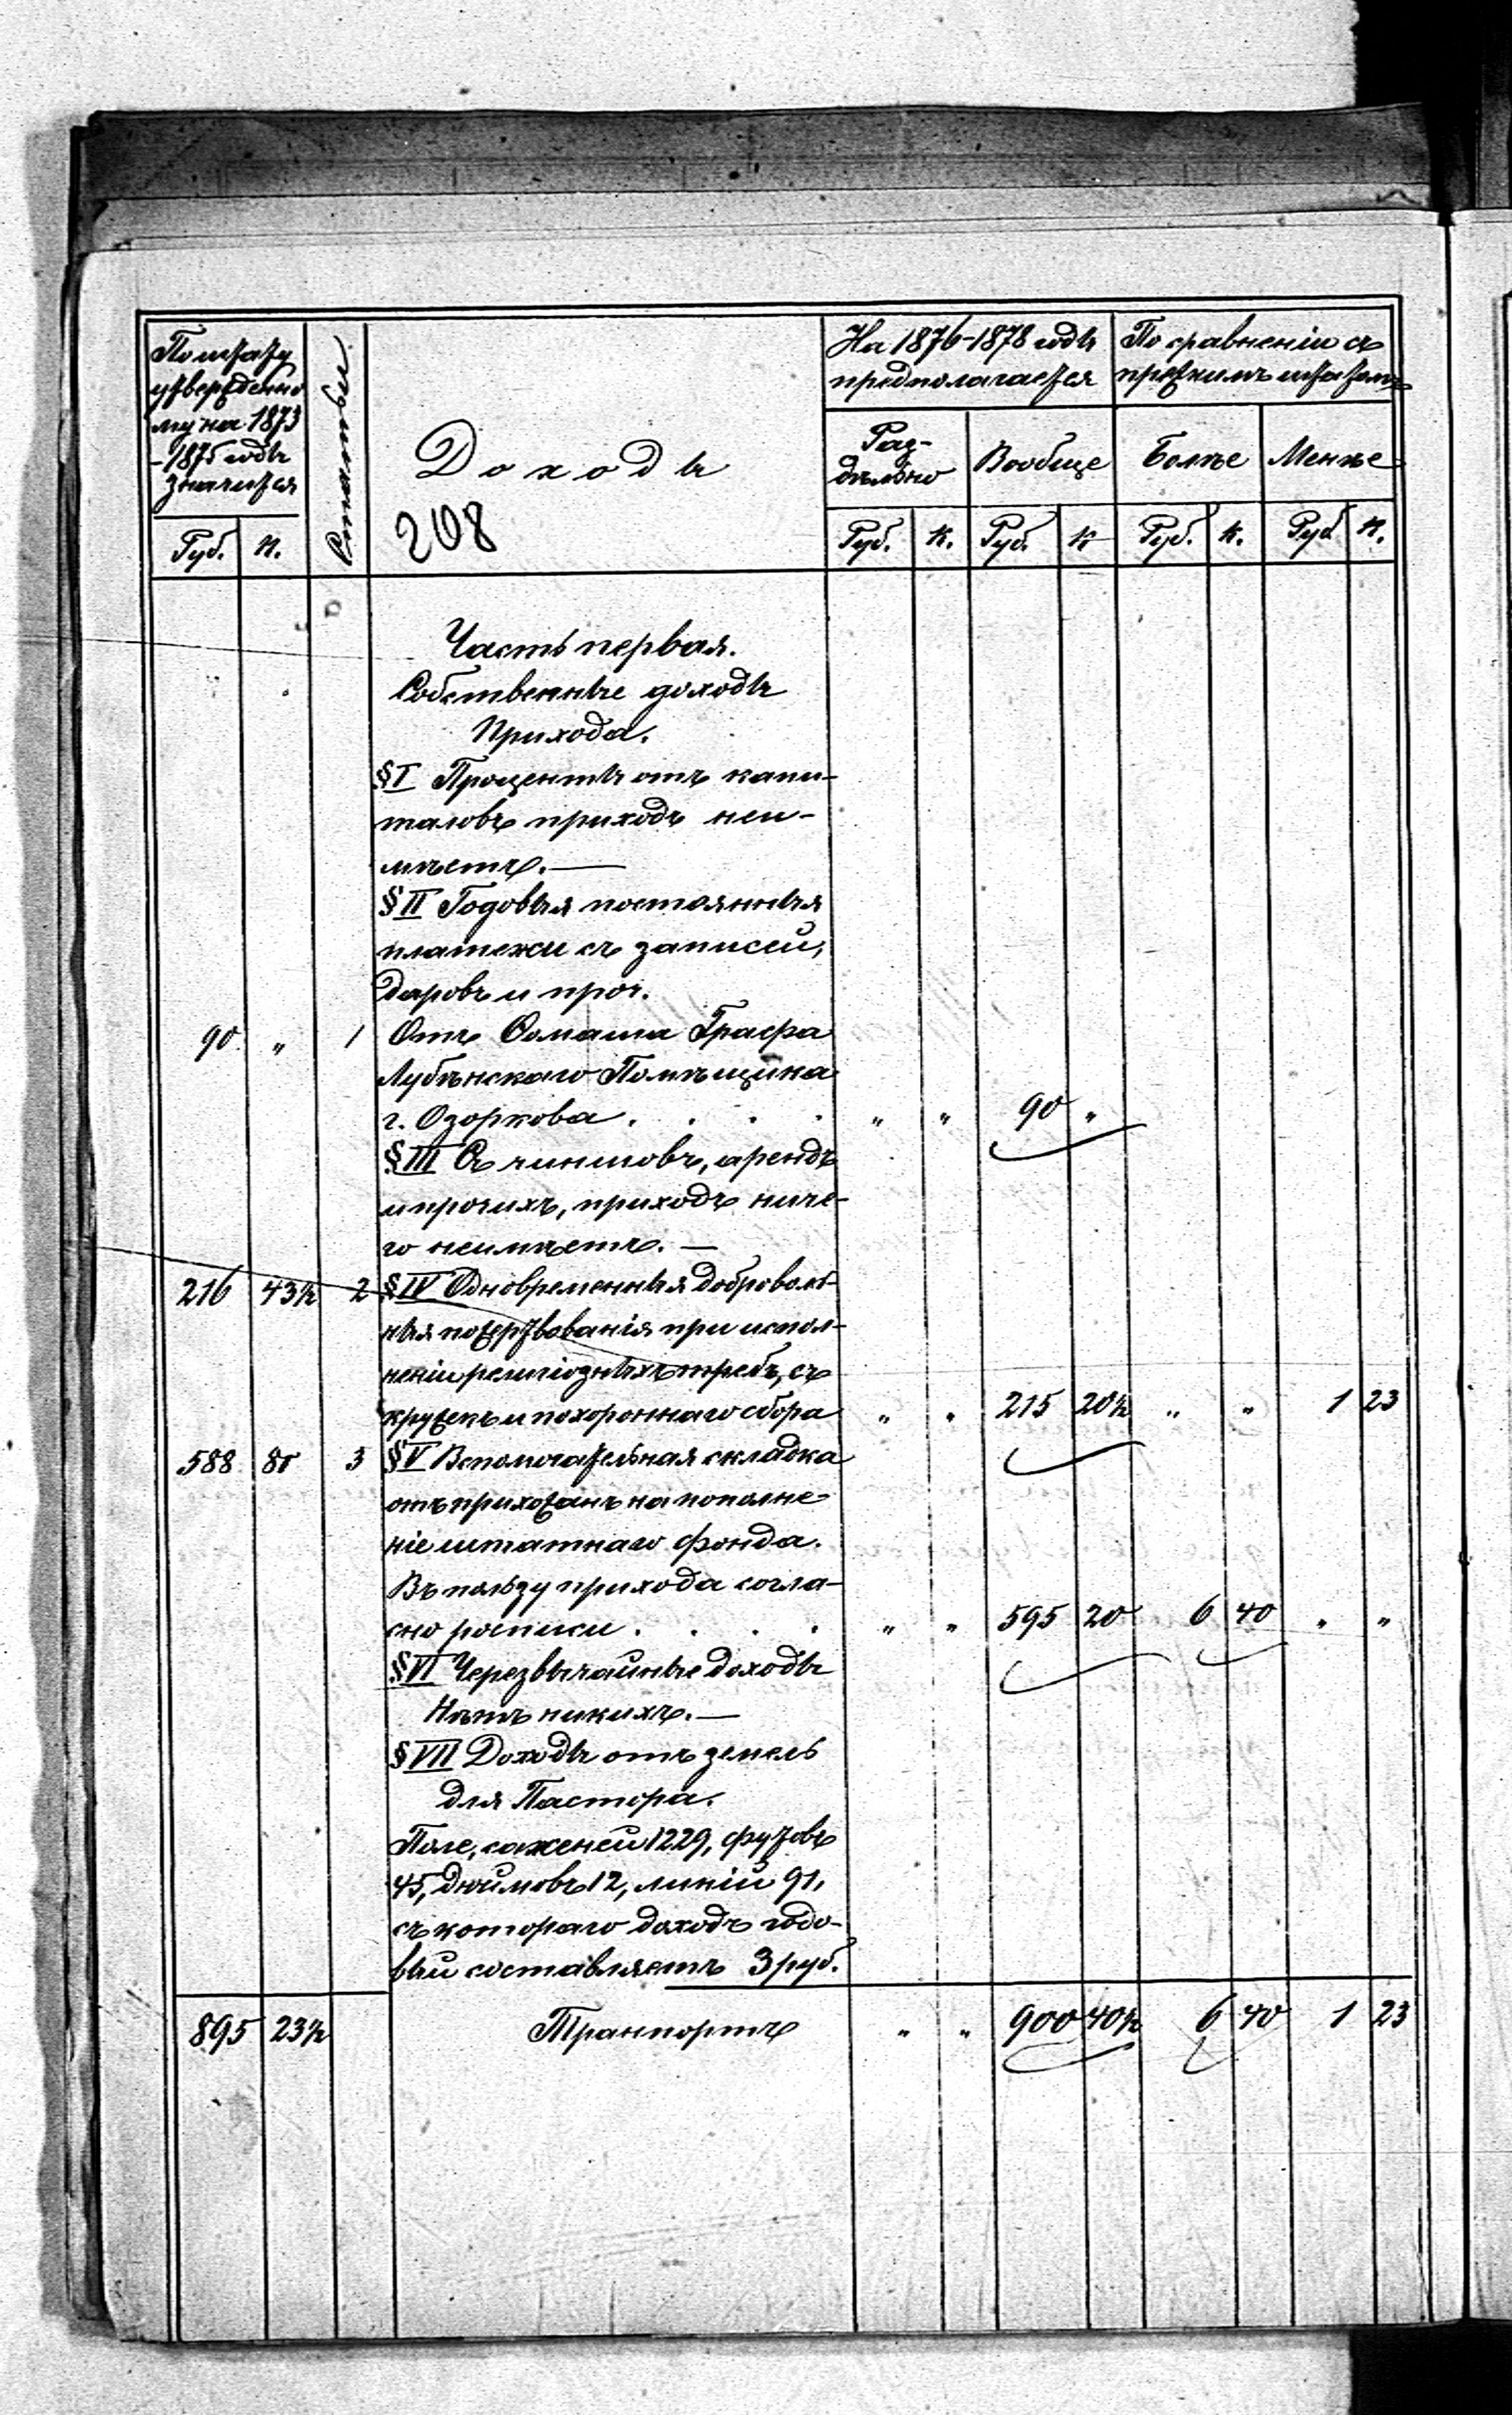 По штату
утвержденно
му на 1873
-1875 годы
значится
Руб. к.
Статьи
Доходы
208
На 1876-1878 годы
предполагается
По сравненію съ
прежнимъ штатомъ
Раз-
дѣльно
Вообще
Болѣе
Менѣе
Руб. к. Руб. к Руб. к. Руб к.
Часть первая.
Собственные доходы
Прихода.
§ I Проценты отъ капи-
таловъ приходъ неи-
мѣетъ.—
§ II Годовыя постоянныя
платежи съ записей,
даровъ и проч.
90 „ 1 Отъ Графа
Помѣщика
г. Озоркова . . . „ „ 90 „
§ III Съ чиншовъ, арендъ
и прочихъ, приходъ ниче-
го неимѣетъ.—
216 43½ 2 § IV Одновременныя доброволь-
ныя пожертвованія при испол-
неніи религіозныхъ требъ, съ
кружекъ и похороннаго сбора „ „ 215 20½ „ „ 1 23
588 80 3 § V Вспомогательная складка
отъ прихожанъ на пополне-
ніе штатнаго фонда.
Въ пользу прихода согла-
сно росписи . . . „ „ 595 20 6 40 „ „
§ VI Черезвычайные доходы
Нѣтъ никихъ.—
§ VII Доходы отъ земель
для Пастора.
Поле, саженей 1229, футовъ
45, дюймовъ 12, линій 91,
съ котораго доходъ годо-
вый составляетъ 3 руб.
895 23½ Транпортъ „ „ 900 40½ 6 40 1 23